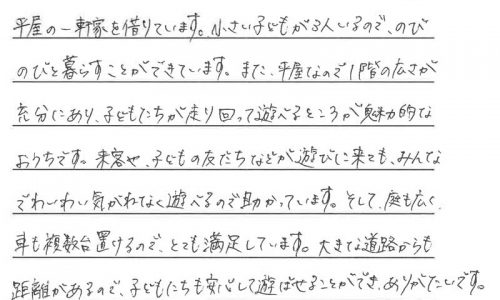 平屋の一軒家を借りています。小さい子どもが3人いるので、のび
のびと暮らすことができています。また、平屋なので1階の広さが
充分にあり、子どもたちが走り回って遊べるところが魅力的な
おうちです。来客や、子どもの友だちなどが遊びに来ても、みんな
でわいわい気がねなく遊べるので助かっています。そして、庭も広く、
車も複数台置けるので、とても満足しています。大きな道路からも
距離があるので、子どもたちも安心して遊ばせることができ、ありがたいです。